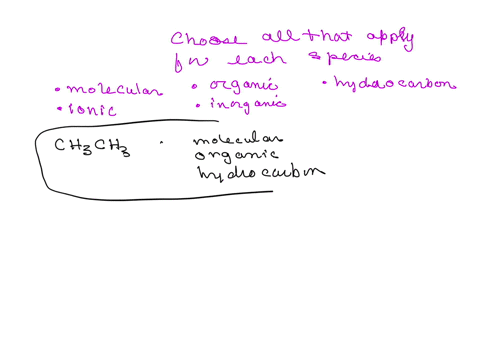 Choose all that apply
for each species
• molecular • organic • hydrocarbon
• ionic • inorganic
CH3CH3 • molecular
organic
hydrocarbon